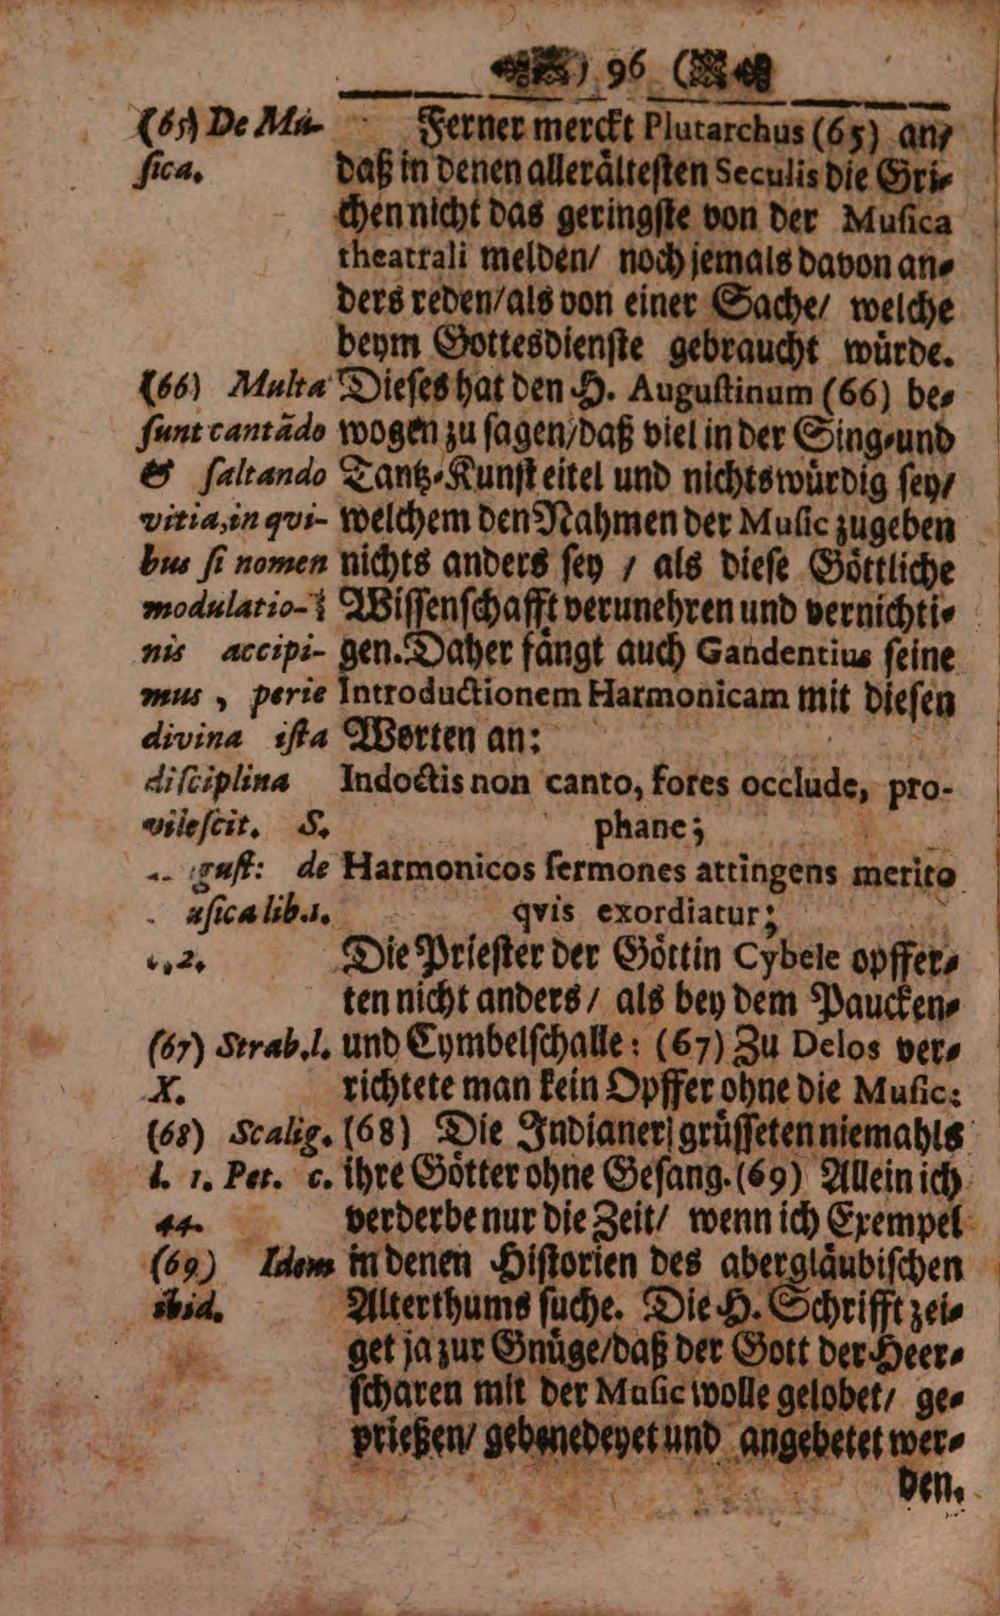 ) 96 (
(65) De Mu-
ſica.
Ferner merckt Plutarchus (65) an/
daß in denen allerälteſten Seculis die Gri-
chen nicht das geringſte von der Muſica
theatrali melden/ noch jemals davon an-
ders reden/als von einer Sache/ welche
beym Gottesdienſte gebraucht würde.
Dieſes hat den H. Auguſtinum (66) be-
wogen zu ſagen/daß viel in der Sing-und
Tantz-Kunſt eitel und nichtswürdig ſey/
welchem den Nahmen der Muſic zugeben
nichts anders ſey / als dieſe Göttliche
Wiſſenſchafft verunehren und vernichti-
gen. Daher fängt auch Gandentius ſeine
Introductionem Harmonicam mit dieſen
Worten an:
Indoctis non canto, fores occlude, pro-
phane;
Harmonicos ſermones attingens merito
qvis exordiatur;
Die Prieſter der Göttin Cybele opffer-
ten nicht anders / als bey dem Paucken-
und Cymbelſchalle: (67) Zu Delos ver-
richtete man kein Opffer ohne die Muſic:
(68) Die Indianer grüſſeten niemahls
ihre Götter ohne Geſang. (69) Allein ich
verderbe nur die Zeit/ wenn ich Exempel
in denen Hiſtorien des abergläubiſchen
Alterthums ſuche. Die H. Schrifft zei-
get ja zur Gnüge/daß der Gott der Heer-
ſcharen mit der Muſic wolle gelobet/ ge-
prießen/ gebenedeyet und angebetet wer-
den.
(66) Multa
ſunt cantãdo
& ſaltando
vitia, in qvi-
bus ſi nomen
modulatio-
nis accipi-
mus, perie
divina iſta
diſciplina
vileſcit. S.
guſt: de
uſica lib.1.
2.
(67) Strab.l.
X.
(68) Scalig.
l. 1. Pet. c.
44.
(69) Idem
ibid.